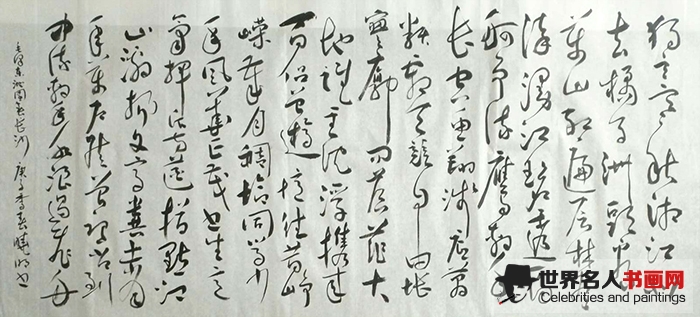 独立寒秋湘江北
去橘子洲头看
万山红遍层林尽
染漫江碧透百
舸争流鹰击
长空鱼翔浅底万
类霜天竞自由怅
寥廓问苍茫大
地谁主沉浮携来
百侣曾游忆往昔峥
嵘岁月稠恰同学少
年风华正茂书生意
气挥斥方遒指点江
山激扬文字粪土当
年万户侯曾记否到
中流击水浪遏飞舟
毛泽东沁园春长沙 庚子
世界名人书画网
Celebrities and paintings